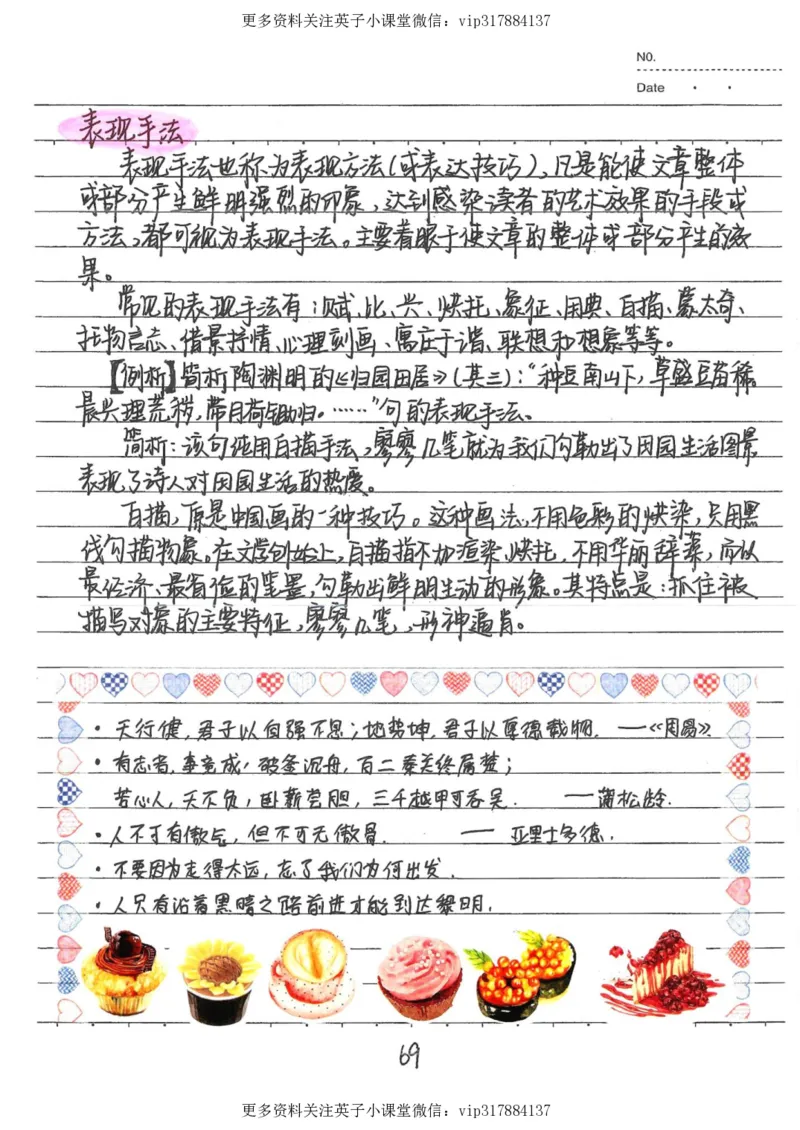 更多资料关注英子小课堂微信：vip317884137
NO.
Date
表现手法
表现手法也称为表现方法(或表达技巧)，凡是能使文章整体
或部分产生鲜明强烈的印象，达到感染读者的艺术效果的手段或
方法，都可视为表现手法。主要着眼于使文章的整体或部分产生的效
果。
常见的表现手法有：赋、比、兴、烘托、象征、用典、白描、蒙太奇、
托物言志、借景抒情、心理刻画、寓庄于谐、联想和想象等等。
【例析】简析陶渊明的《归园田居》(其三)："种豆南山下，草盛豆苗稀。
晨兴理荒秽，带月荷锄归。……"句的表现手法。
简析：该句纯用白描手法，寥寥几笔就为我们勾勒出了田园生活图景
表现了诗人对田园生活的热爱。
白描，原是中国画的一种技巧。这种画法，不用色彩的烘染，只用黑
线勾描物象。在文学创始上，白描指不加渲染、烘托，不用华丽辞藻，而以
最经济、最省俭的笔墨，勾勒出鲜明生动的形象。其特点是：抓住被
描写对象的主要特征，寥寥几笔，形神逼肖。
·天行健，君子以自强不息；地势坤，君子以厚德载物。——《周易》
·有志者，事竟成，破釜沉舟，百二秦关终属楚；
苦心人，天不负，卧薪尝胆，三千越甲可吞吴. ——蒲松龄.
·人不可有傲气，但不可无傲骨. —— 亚里士多德.
·不要因为走得太远，忘了我们为何出发.
·人只有沿着黑暗之路前进才能到达黎明.
69
更多资料关注英子小课堂微信：vip317884137